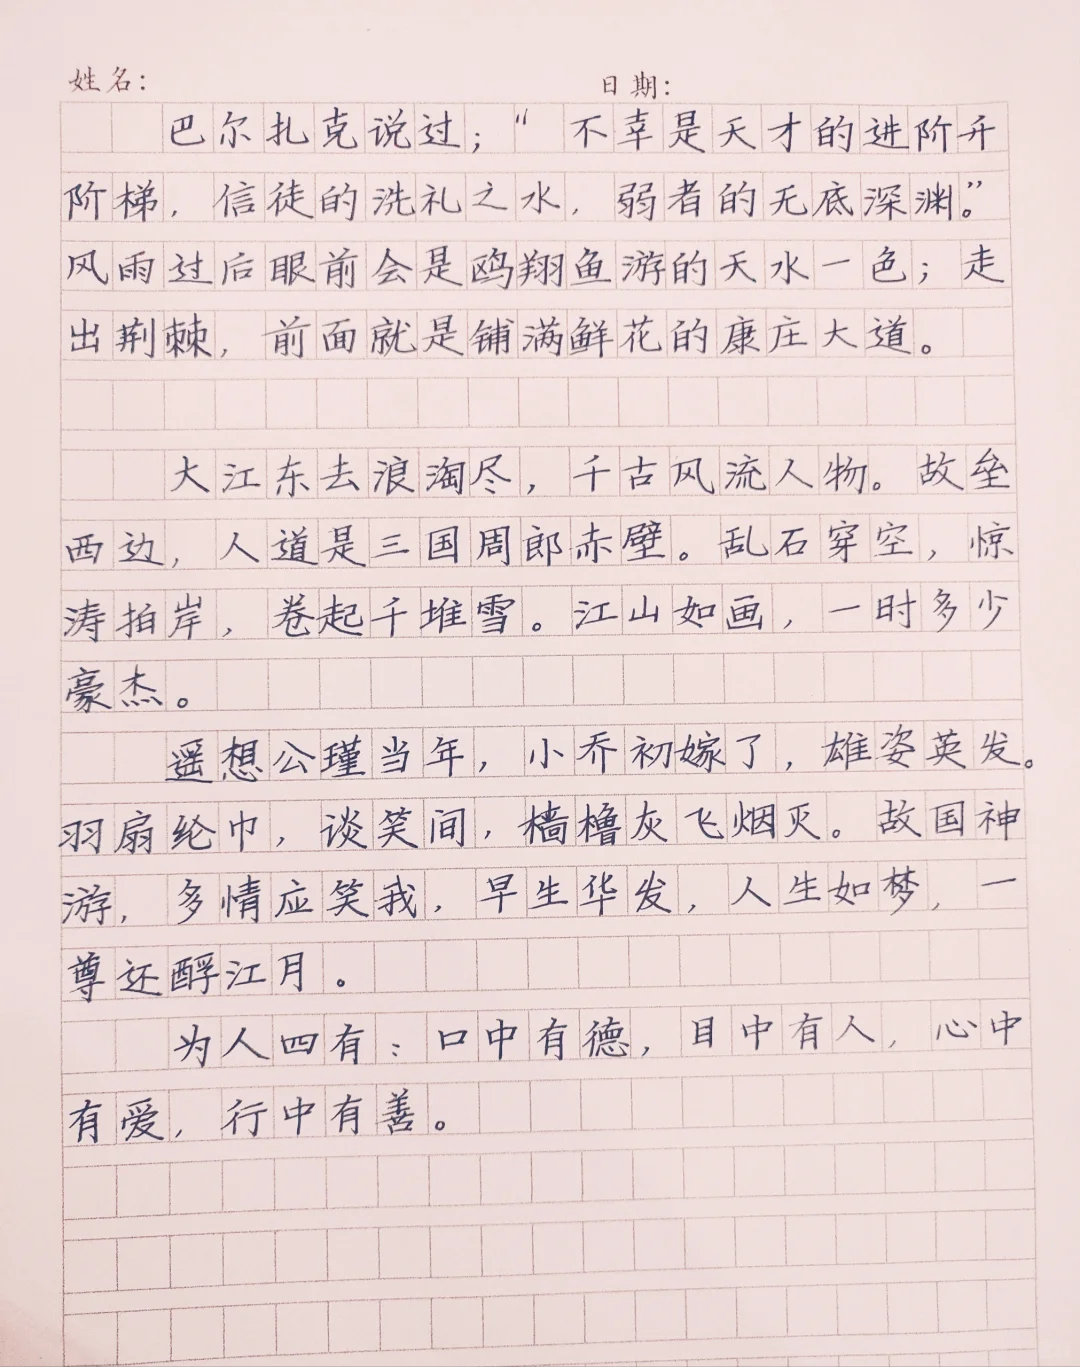 姓名： 日期：
巴尔扎克说过；“不幸是天才的进阶升
阶梯，信徒的洗礼之水，弱者的无底深渊。”
风雨过后眼前会是鸥翔鱼游的天水一色；走
出荆棘，前面就是铺满鲜花的康庄大道。
大江东去浪淘尽，千古风流人物。故垒
西边，人道是三国周郎赤壁。乱石穿空，惊
涛拍岸，卷起千堆雪。江山如画，一时多少
豪杰。
遥想公瑾当年，小乔初嫁了，雄姿英发。
羽扇纶巾，谈笑间，樯橹灰飞烟灭。故国神
游，多情应笑我，早生华发，人生如梦，一
尊还酹江月。
为人四有：口中有德，目中有人，心中
有爱，行中有善。